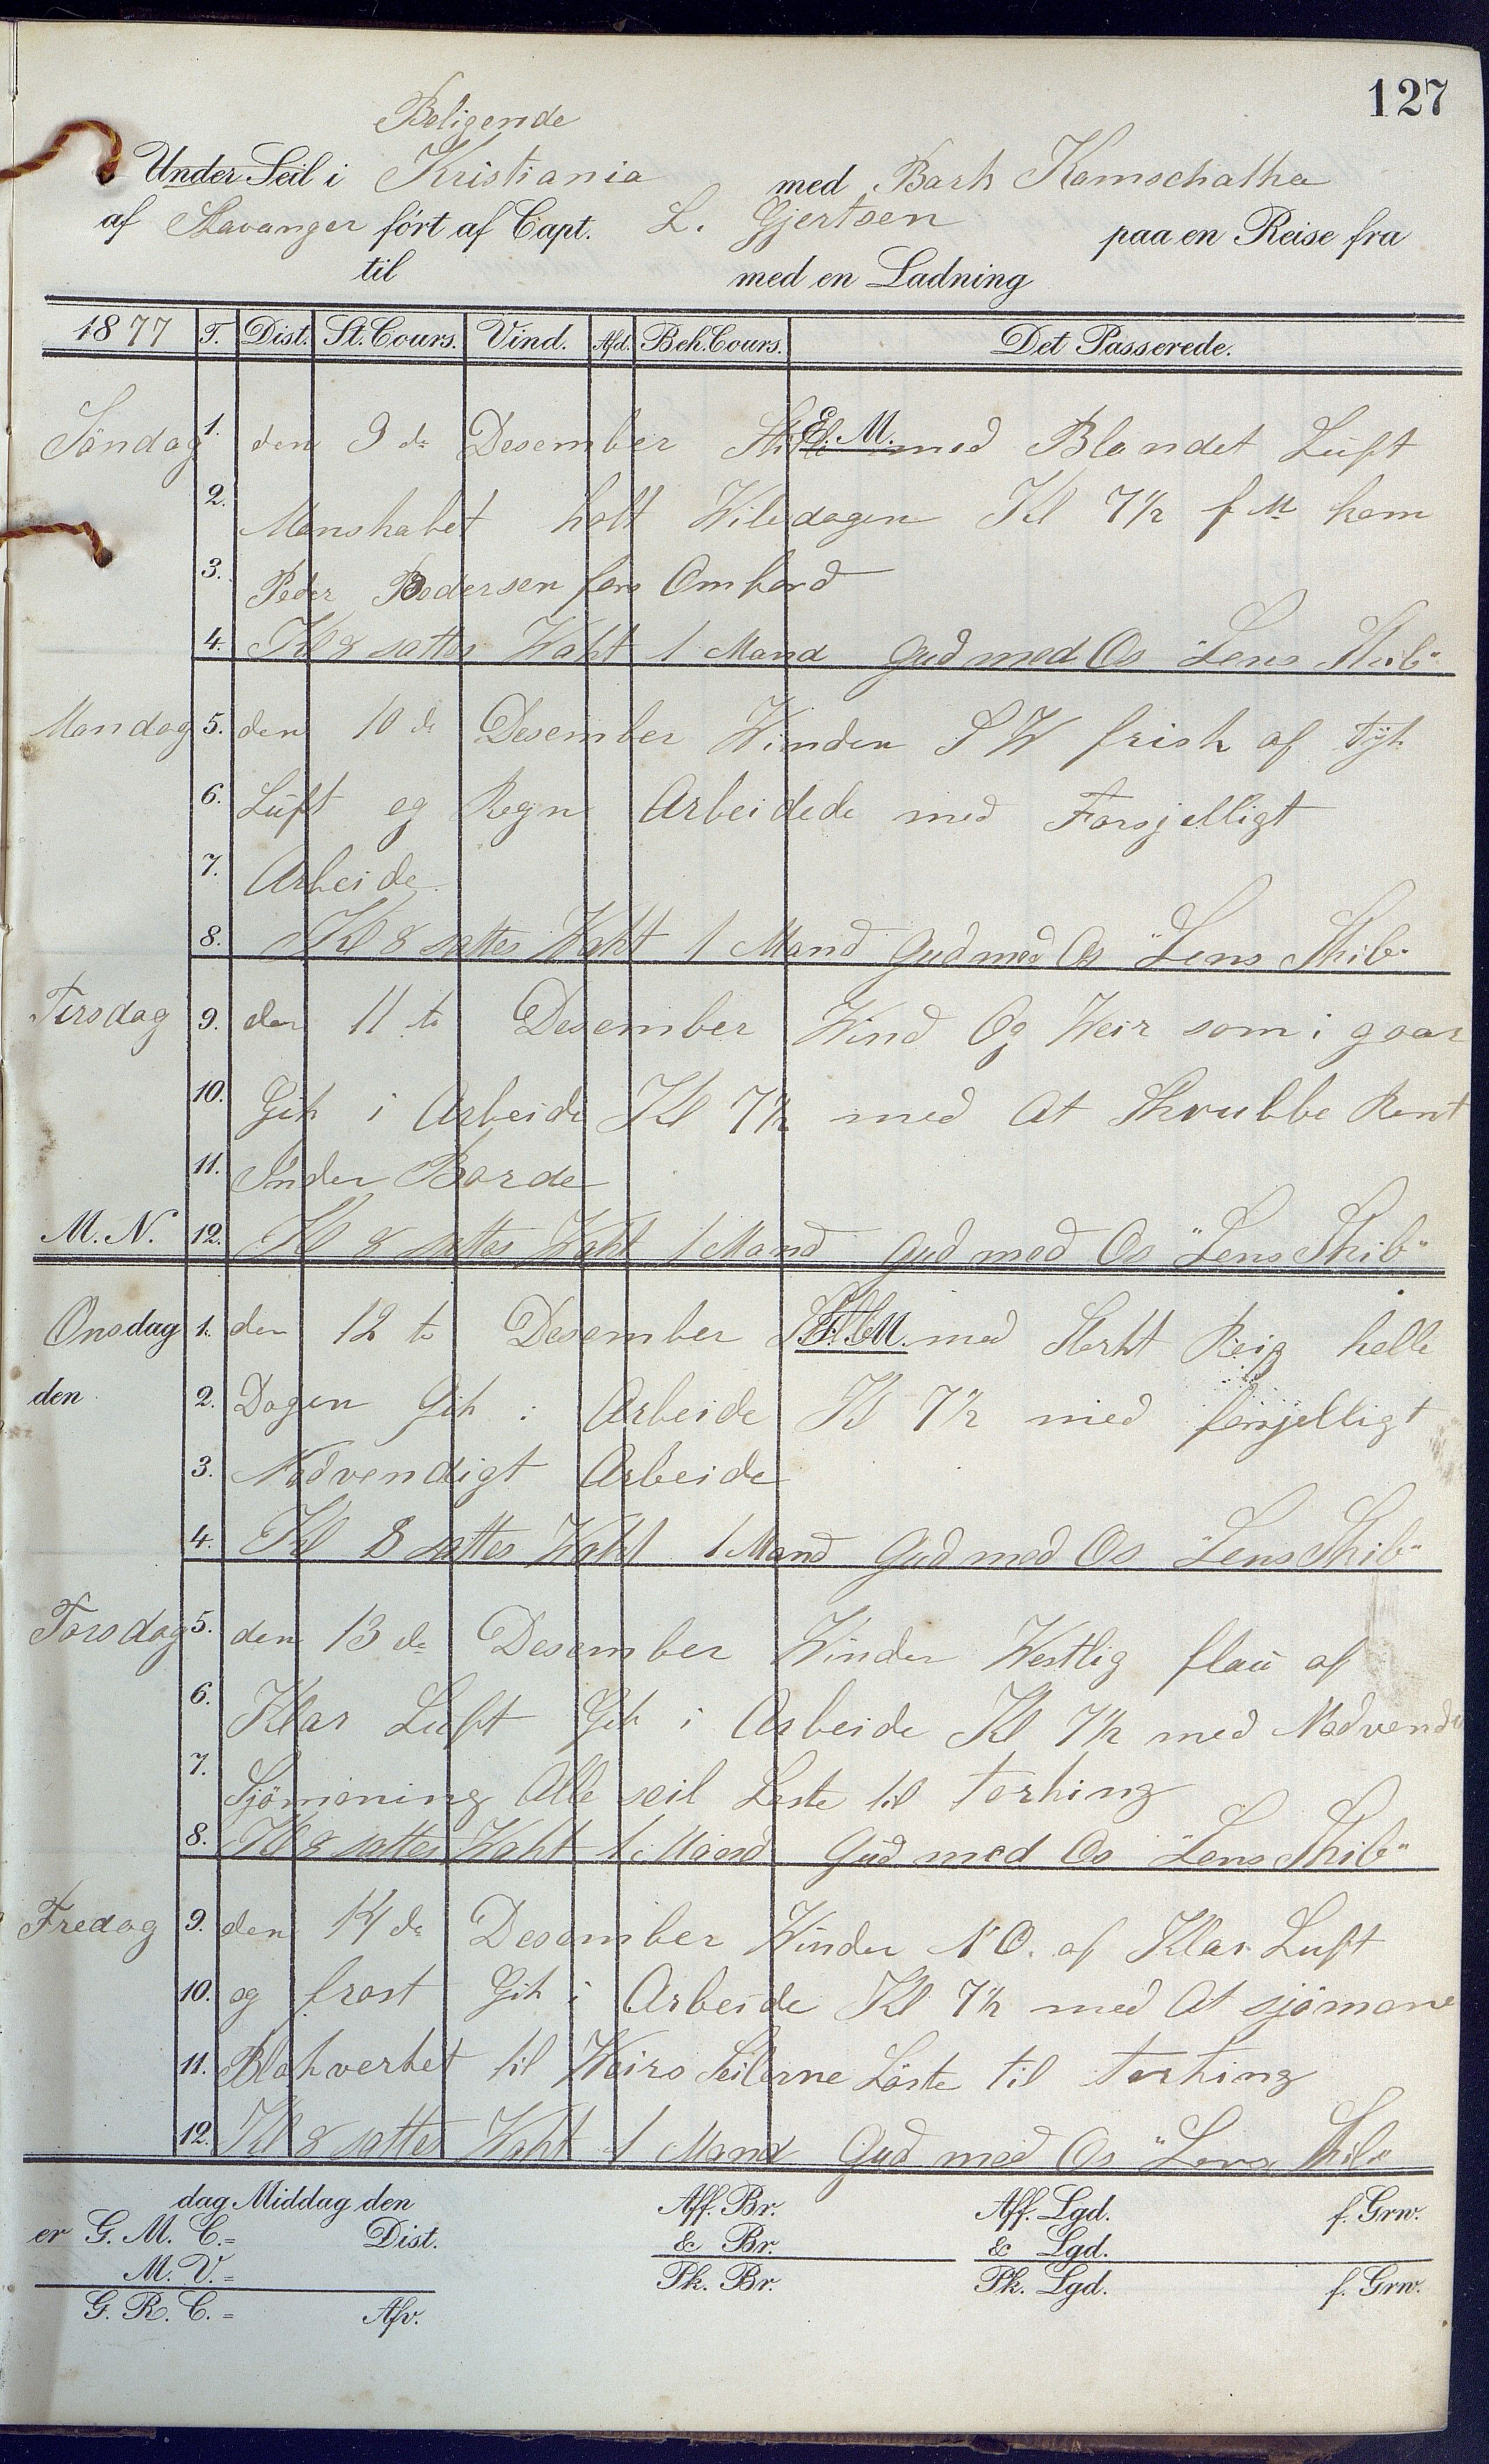 127
Beligende
Under Seil i Kristiania med Bark Kamschatka
af Stavanger ført af Capt. L. Gjertsen paa en Reise fra
til med en Ladning
1877 T. Dist. St. Cours. Vind. Afd. Beh. Cours. Det Passerede.
E. M.
Søndag 1. den 9 de Desember Stille med Blandet Luft
2. Manskabet holt Wiledagen Kl 7 1/2 f M kom
3. Peder Pedersen Ombord
4. Kl 8 sattes Wakt 1 Mand Gud med Os "Lens Skib"
Mandag 5. den 10 de Desember Winden S W frisk af tyk
6. Luft og Regn Arbeidede med Forsjelligt
7. Arbeide
8. Kl 8 sattes Wakt 1 Mand Gud med Os "Lens Skib"
Tirsdag 9. den 11 te Desember Wind Og Weir som i gaar
10. Gik i Arbeide Kl 7 1/2 med At Skrubbe Rent
11. Inden Borde
M. N. 12. Kl 8 sattes Wakt 1 Mand Gud med Os "Lens Skib"
F. M.
Onsdag 1. den 12 te Desember Stille med Sterkt Reig helle
den 2. Dagen Gik i Arbeide Kl 7 1/2 med forsjelligt
3. Nødvendigt Arbeide
4. Kl 8 sattes Wakt 1 Mand Gud med Os "Lens Skib"
Torsdag 5. den 13 de Desember Winden Westlig flau af
6. Klar Luft Gik i Arbeide Kl 7 1/2 med Nødvendi
7. Sjømaning Alle seil Løste til Tørking
8. Kl 8 sattes Wakt 1 Mand Gud med Os "Lens Skib"
Fredag 9. den 14 de Desember Winden N O. af Klar Luft
10. og frost Gik i Arbeide Kl 7 1/2 med At sjømane
11. Blokverket til Weirs Seilerne Løste til Tørking
12. Kl 8 sattes Wakt 1 Mand Gud med Os "Lens Skib"
dag Middag den Aff. Br. Aff. Lgd. f. Grw.
er G. M. C. = Dist. & Br. & Lgd.
M. V. = Pk. Br. Pk. Lgd. f. Grw.
G. R. C. = Afv.